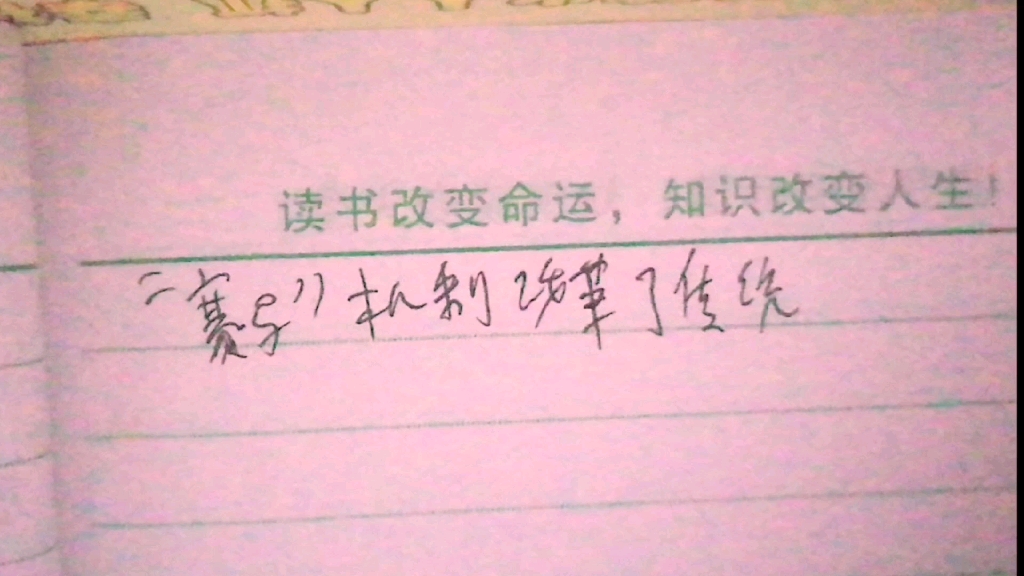 读书改变命运，知识改变人生！
“赛马”机制改革了传统